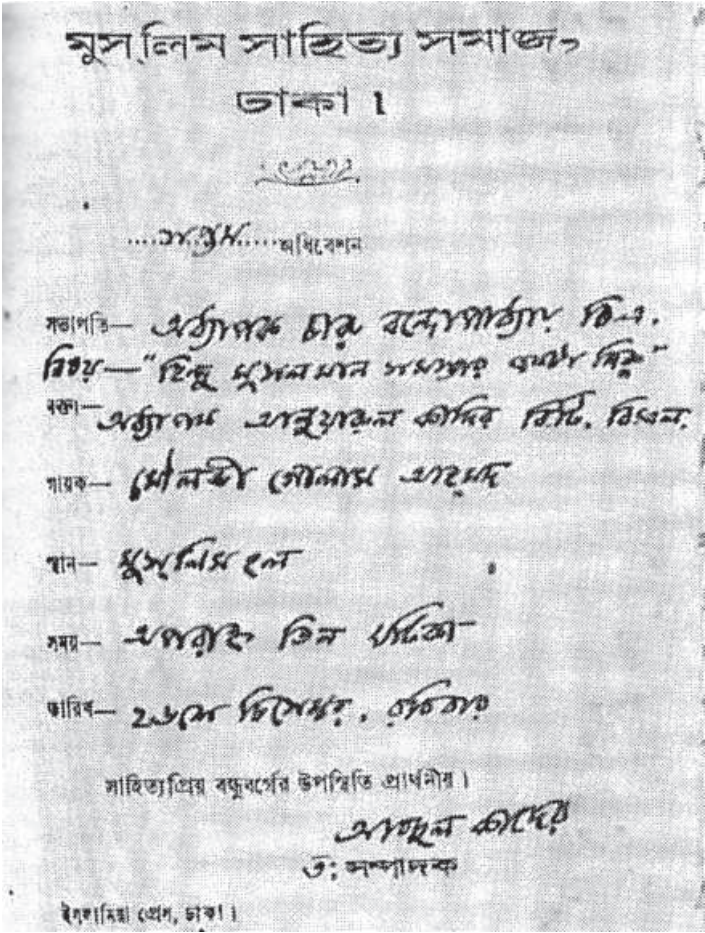 মুস্‌লিম সাহিত্য সমাজ,
ঢাকা।
.....সপ্তম.....অধিবেশন
সভাপতি— অধ্যাপক চারু বন্দোপাধ্যায় বি-এ.
বিষয়—"হিন্দু মুসলমান সমস্যার
বক্তা— অধ্যাপক আনুয়ারুল কাদির বিটি. বিএল.
গায়ক— মৌলবী গোলাম আহ্মদ
স্থান— মুস্‌লিম হল
সময়— অপরাহ্ন তিন ঘটিকা
তারিখ— ২৬শে ডিসেম্বর, রবিবার
সাহিত্যপ্রিয় বন্ধুবর্গের উপস্থিতি প্রার্থনীয়।
আবদুল কাদের
ভ: সম্পাদক
ইসলামিয়া প্রেস, ঢাকা।